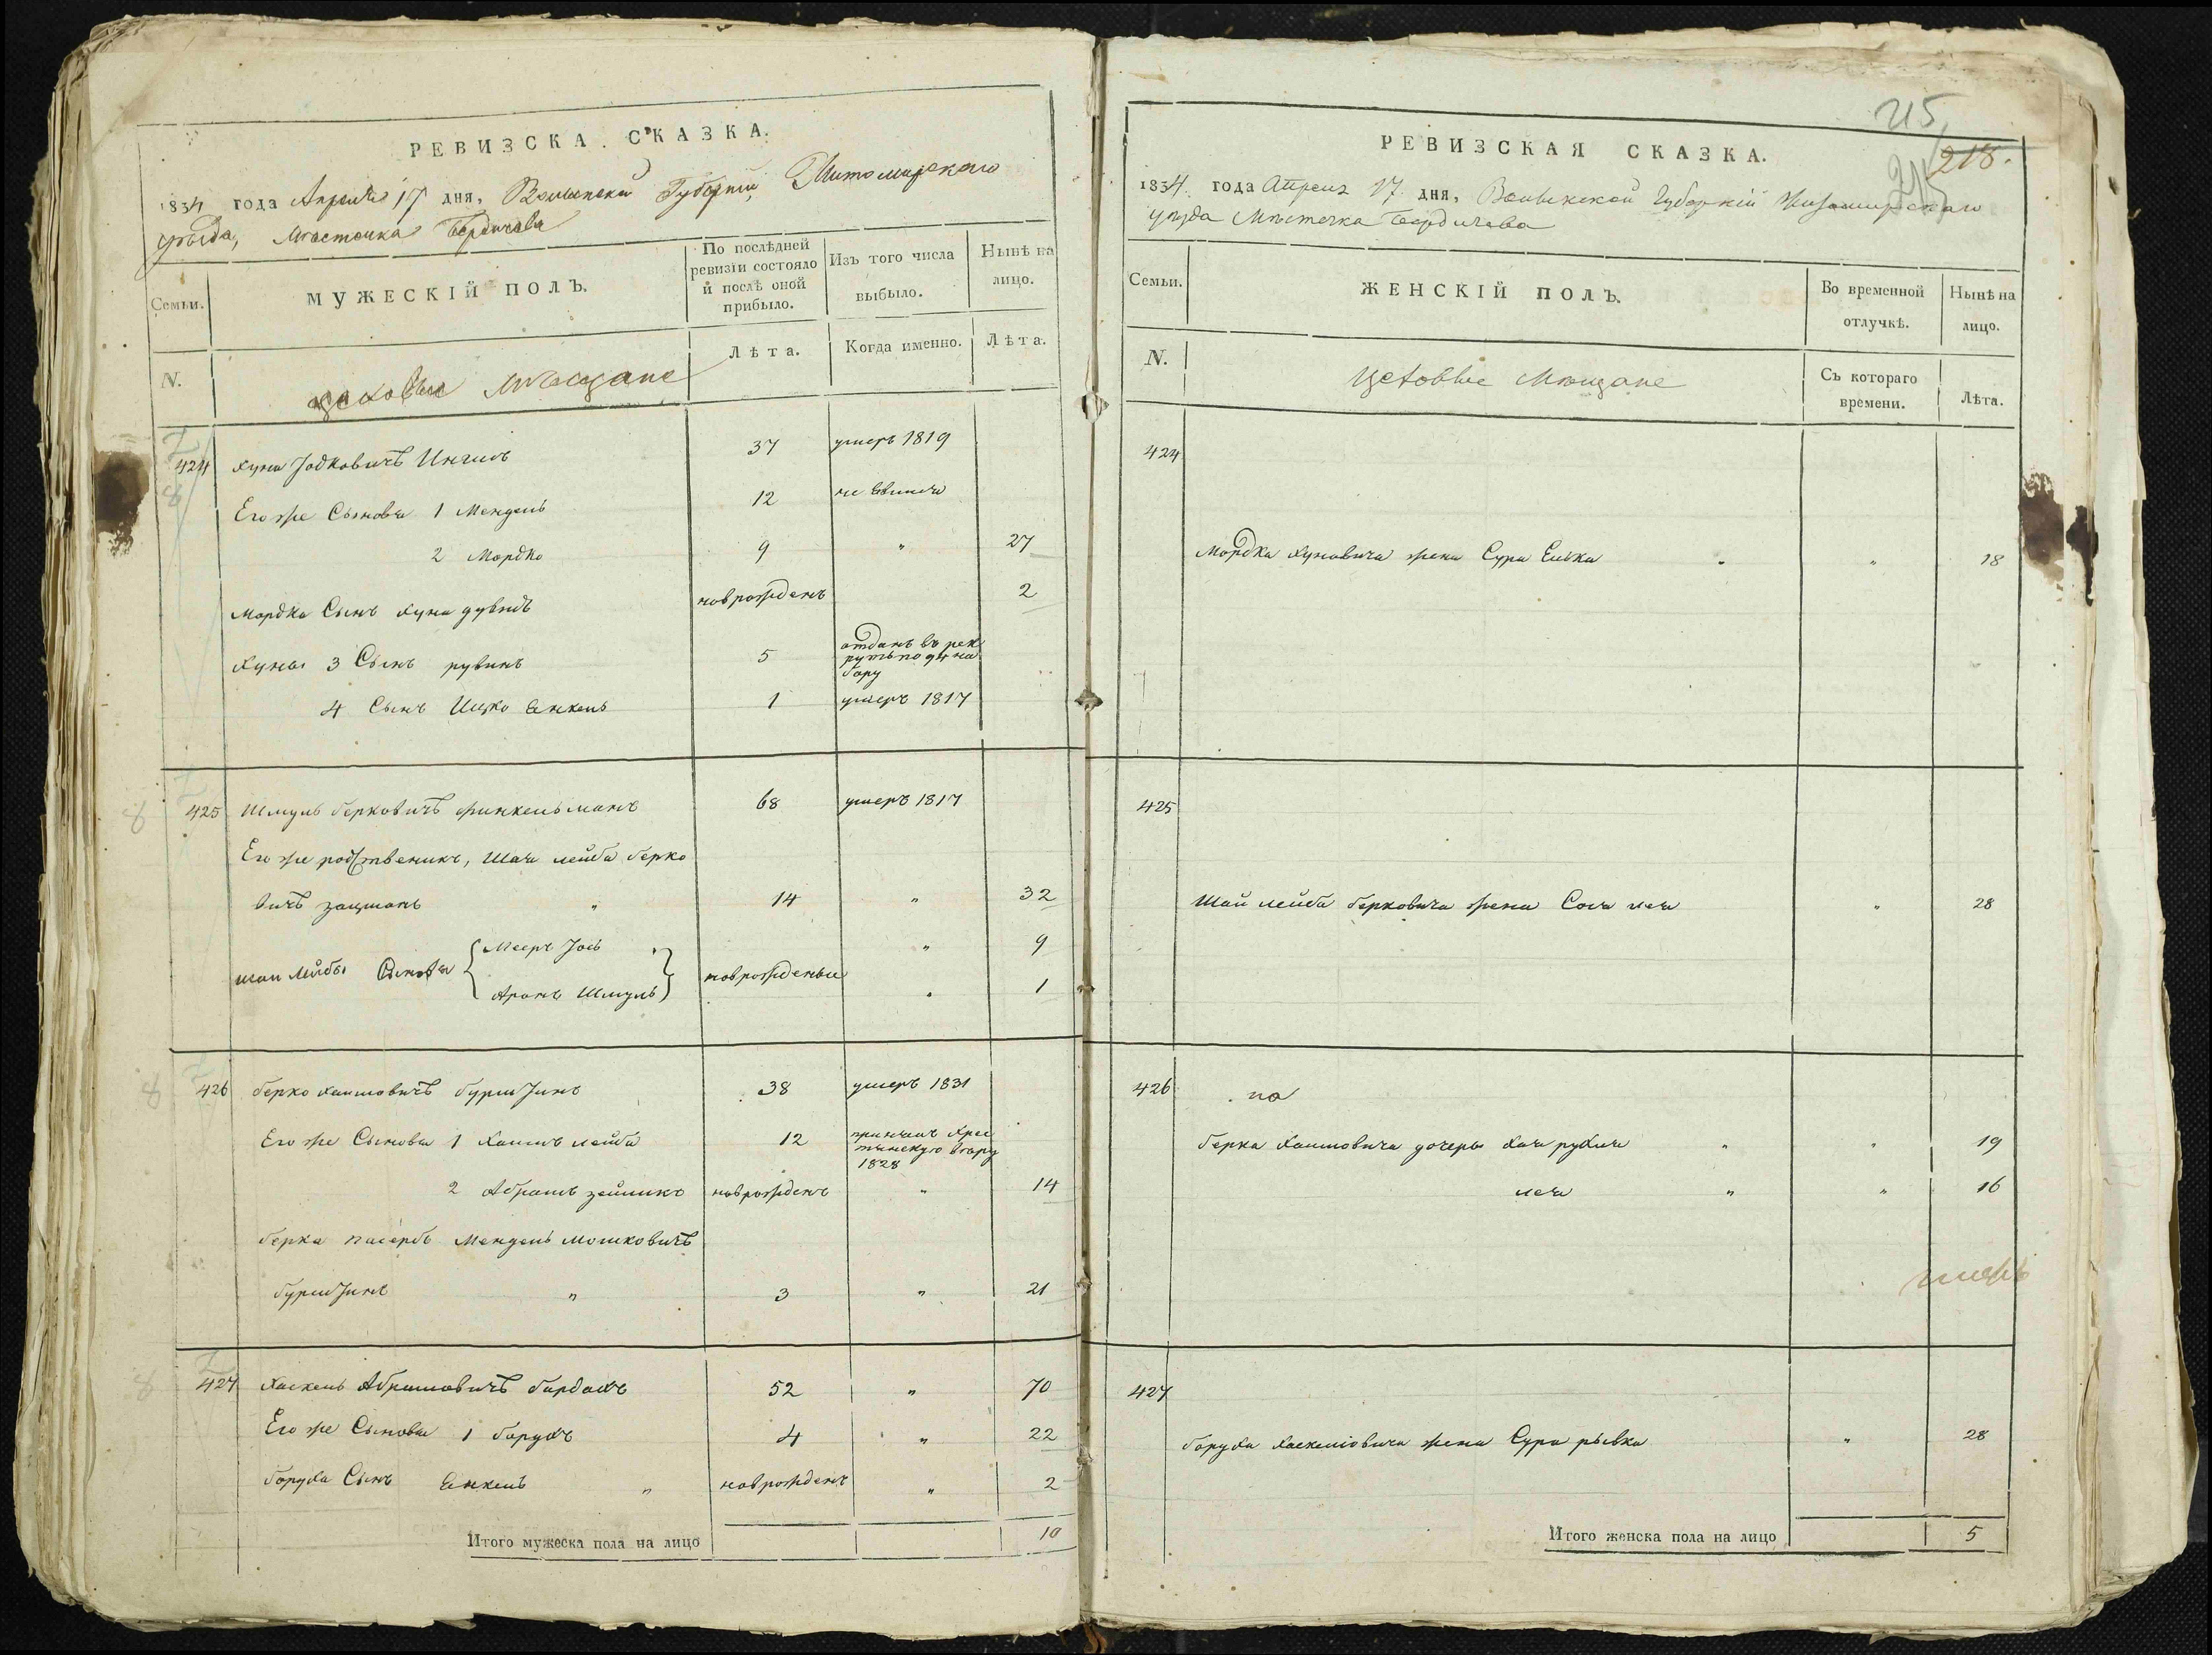 РЕВИЗСКА СКАЗКА.
1834 года Апреля 17 дня, Волынской Губернии, Житомирскаго
уѣзда, Мѣстечка Бердичева
Семьи.
МУЖЕСКІЙ ПОЛЪ.
По послѣдней ревизіи состояло и послѣ оной прибыло.
Изъ того числа выбыло.
Нынѣ на лицо.
N.
цеховые мѣщане
Лѣта.
Когда именно.
Лѣта.
424 Хуна Іодковичъ 37 умеръ 1819
Его же Сыновья 1 Мендель 12
2 Мордко 9 " 27
Мордка Сынъ Хуна дувидъ новрожденъ 2
Хуны 3 Сынъ рувинъ 5 отданъ въ рек
рутъ по
бору
4 Сынъ Ицко Янкель 1 умеръ 1817
425 Шмуль берковичъ финкельманъ 68 умеръ 1817
Его же родственикъ, Шая лейба берко
вичъ зацманъ " 14 " 32
шаи лейбы Сыновья Мееръ Іось " 9
Аронъ Шмуль новрожденые " 1
426 берко хаимовичъ бурштинъ 38 умеръ 1831
Его же Сыновья 1 Хаимъ лейба 12 принялъ хрес
тіянскую вѣру
1828
2 Абрамъ зейликъ новрожденъ " 14
берка пасербъ Мендель мошковичъ
бурштинъ " 3 " 21
427 Хаскель Абрамовичъ бардахъ 52 " 70
Его же Сыновья 1 борухъ 4 " 22
боруха Сынъ Янкель " новрожденъ " 2
Итого мужеска пола на лицо 10
215
218.
РЕВИЗСКАЯ СКАЗКА.
1834 года Апреля 17 дня, Волынской Губерніи Житомирскаго
уѣзда Мѣстечка Бердичева
Семьи.
ЖЕНСКІЙ ПОЛЪ.
Во временной отлучкѣ.
Нынѣ на лицо.
N.
Цеховые Мѣщане
Съ котораго времени.
Лѣта.
424
Мордка Хуновича жена Сура Елька " " 18
425
Шаи лейба берковича жена Сося лея " 28
426 по
берка Хаимовича дочери Хая рухля " " 19
лея " " 16
427
боруха хаскеліовича жена Сура рывка " 28
Итого женска пола на лицо 5